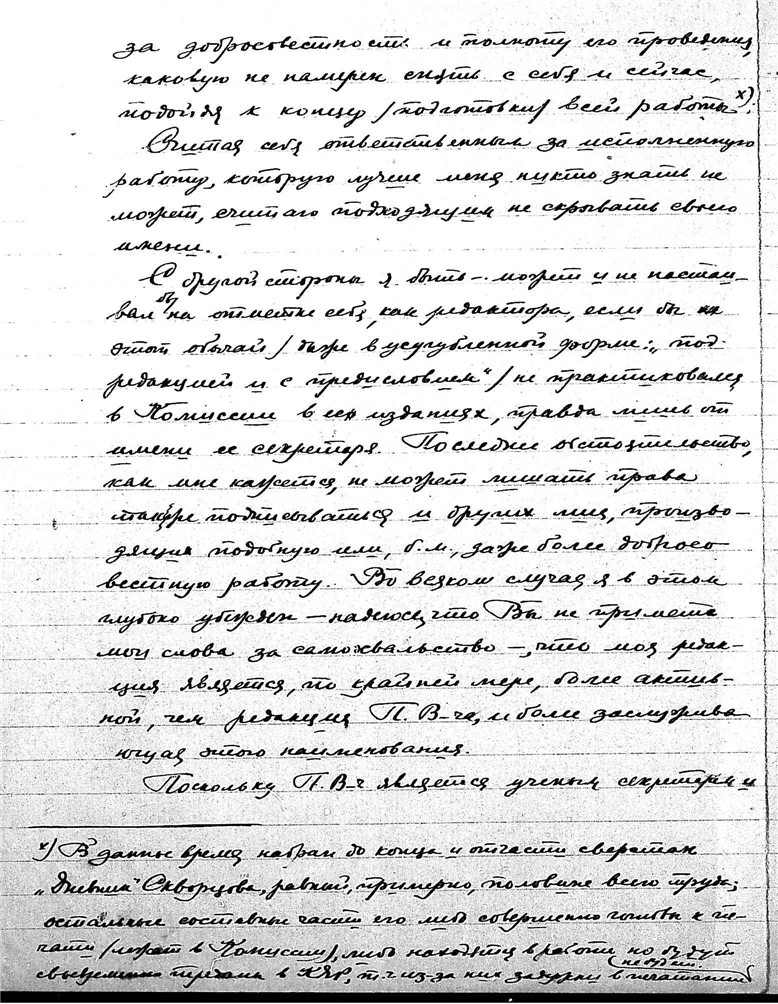 за добросовестность и полноту его проведения,
каковую не намерен снять с себя и сейчас,
подойдя к концу /подготовки/ всей работы х).
Считая себя ответственным за исполненную
работу, которую лучше меня никто знать не
может, считаю подходящим не скрывать своего
имени.
С другой стороны я быть-может и не настаи-
вал бы на отметке себя, как редактора, если бы
этот обычай / даже в усугубленной форме: „под
редакцией и с предисловием“/ не практиковался
в Комиссии в ее изданиях, правда лишь от
имени ее секретаря. Последнее обстоятельство,
как мне кажется, не может лишать права
также подписываться и других лиц, произво-
дящих подобную или, б.м., даже более добросо
вестную работу. Во всяком случае я в этом
глубоко убежден – надеюсь, что Вы не примете
мои слова за самохвальство –, что моя редак-
ция является, по крайней мере, более актив-
ной, чем редакция П. В-ча, и более заслужива
ющая этого наименования.
Поскольку П. В-ч является ученым секретарем и
х/ В данное время набран до конца и отчасти сверстан
„Дневник“ Скворцова, равный, примерно, половине всего труда;
остальные составные части его либо совершенно готовы к пе-
чати /лежат в Комиссии/, либо находятся в работе но будут
своевременно переданы в , т.ч. из-за них задержки в печатании
не будет.